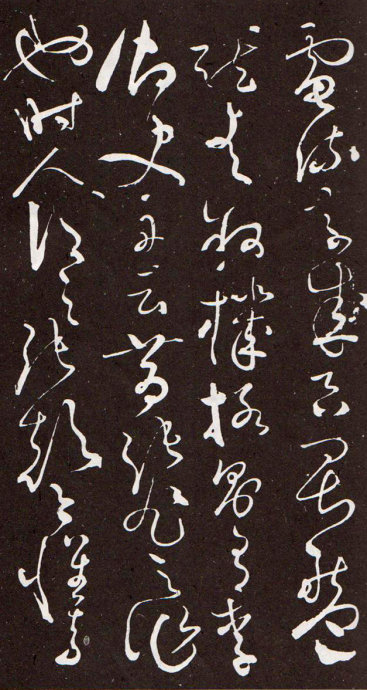 電流字成只畏盤
龍走敘機格則有李
御史舟云昔張旭之作
也時人謂之張顛今懷素